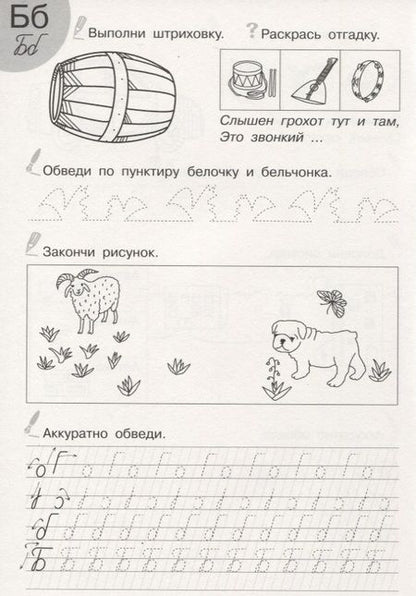 Бб
Бб
Выполни штриховку.
Раскрась отгадку.
Слышен грохот тут и там,
Это звонкий ...
Обведи по пунктиру белочку и бельчонка.
Закончи рисунок.
Аккуратно обведи.
Б